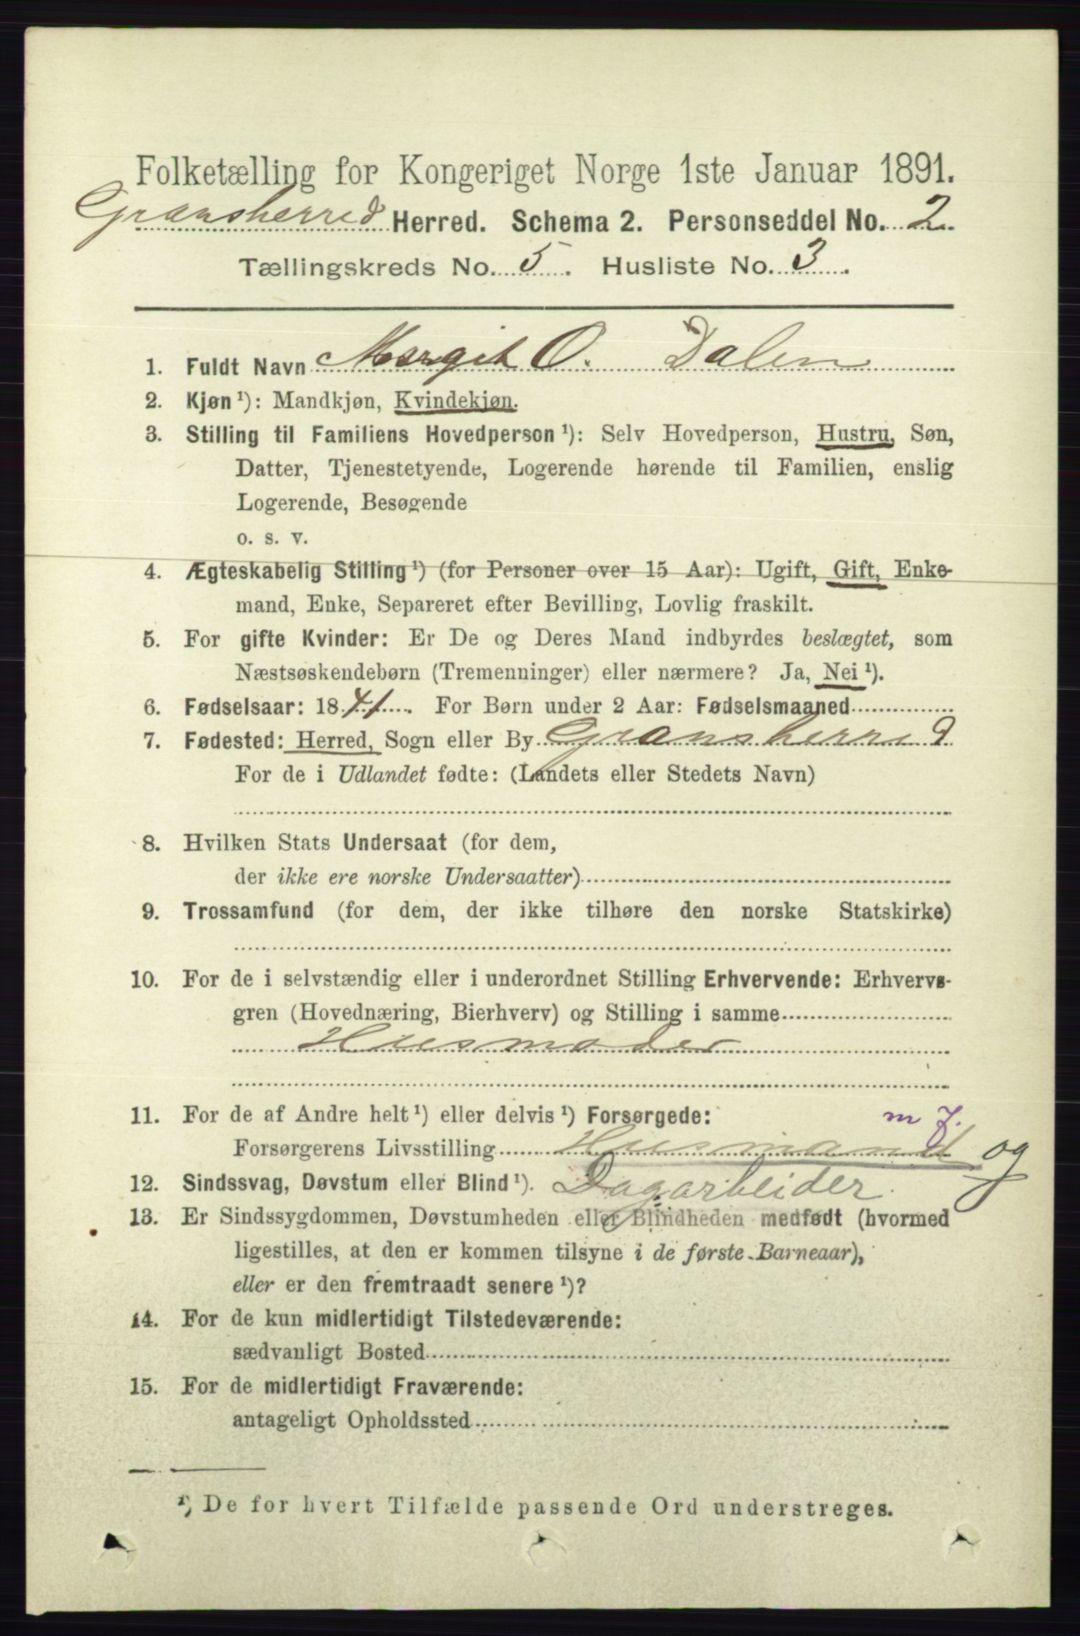 Folketælling for Kongeriget Norge 1ste Januar 1891.
Gransherred Herred. Schema 2. Personseddel No. 2.
Tællingskreds No. 5. Husliste No. 3.
1. Fuldt Navn Margit O. Dalen
2. Kjøn ¹): Mandkjøn, Kvindekjøn.
3. Stilling til Familiens Hovedperson ¹): Selv Hovedperson, Hustru, Søn,
Datter, Tjenestetyende, Logerende hørende til Familien, enslig
Logerende, Besøgende
o. s. v.
4. Ægteskabelig Stilling ¹) (for Personer over 15 Aar): Ugift, Gift, Enke-
mand, Enke, Separeret efter Bevilling, Lovlig fraskilt.
5. For gifte Kvinder: Er De og Deres Mand indbyrdes beslægtet, som
Næstsøskendebørn (Tremenninger) eller nærmere? Ja, Nei ¹).
6. Fødselsaar: 1841. For Børn under 2 Aar: Fødselsmaaned
7. Fødested: Herred, Sogn eller By Gransherred
For de i Udlandet fødte: (Landets eller Stedets Navn)
8. Hvilken Stats Undersaat (for dem,
der ikke ere norske Undersaatter)
9. Trossamfund (for dem, der ikke tilhøre den norske Statskirke)
10. For de i selvstændig eller i underordnet Stilling Erhvervende: Erhvervs-
gren (Hovednæring, Bierhverv) og Stilling i samme
Husmoder
11. For de af Andre helt ¹) eller delvis ¹) Forsørgede: m J.
Forsørgerens Livsstilling Husmand og
12. Sindssvag, Døvstum eller Blind ¹). Dagarbeider
13. Er Sindssygdommen, Døvstumheden eller Blindheden medfødt (hvormed
ligestilles, at den er kommen tilsyne i de første Barneaar),
eller er den fremtraadt senere ¹)?
14. For de kun midlertidigt Tilstedeværende:
sædvanligt Bosted
15. For de midlertidigt Fraværende:
antageligt Opholdssted
¹) De for hvert Tilfælde passende Ord understreges.